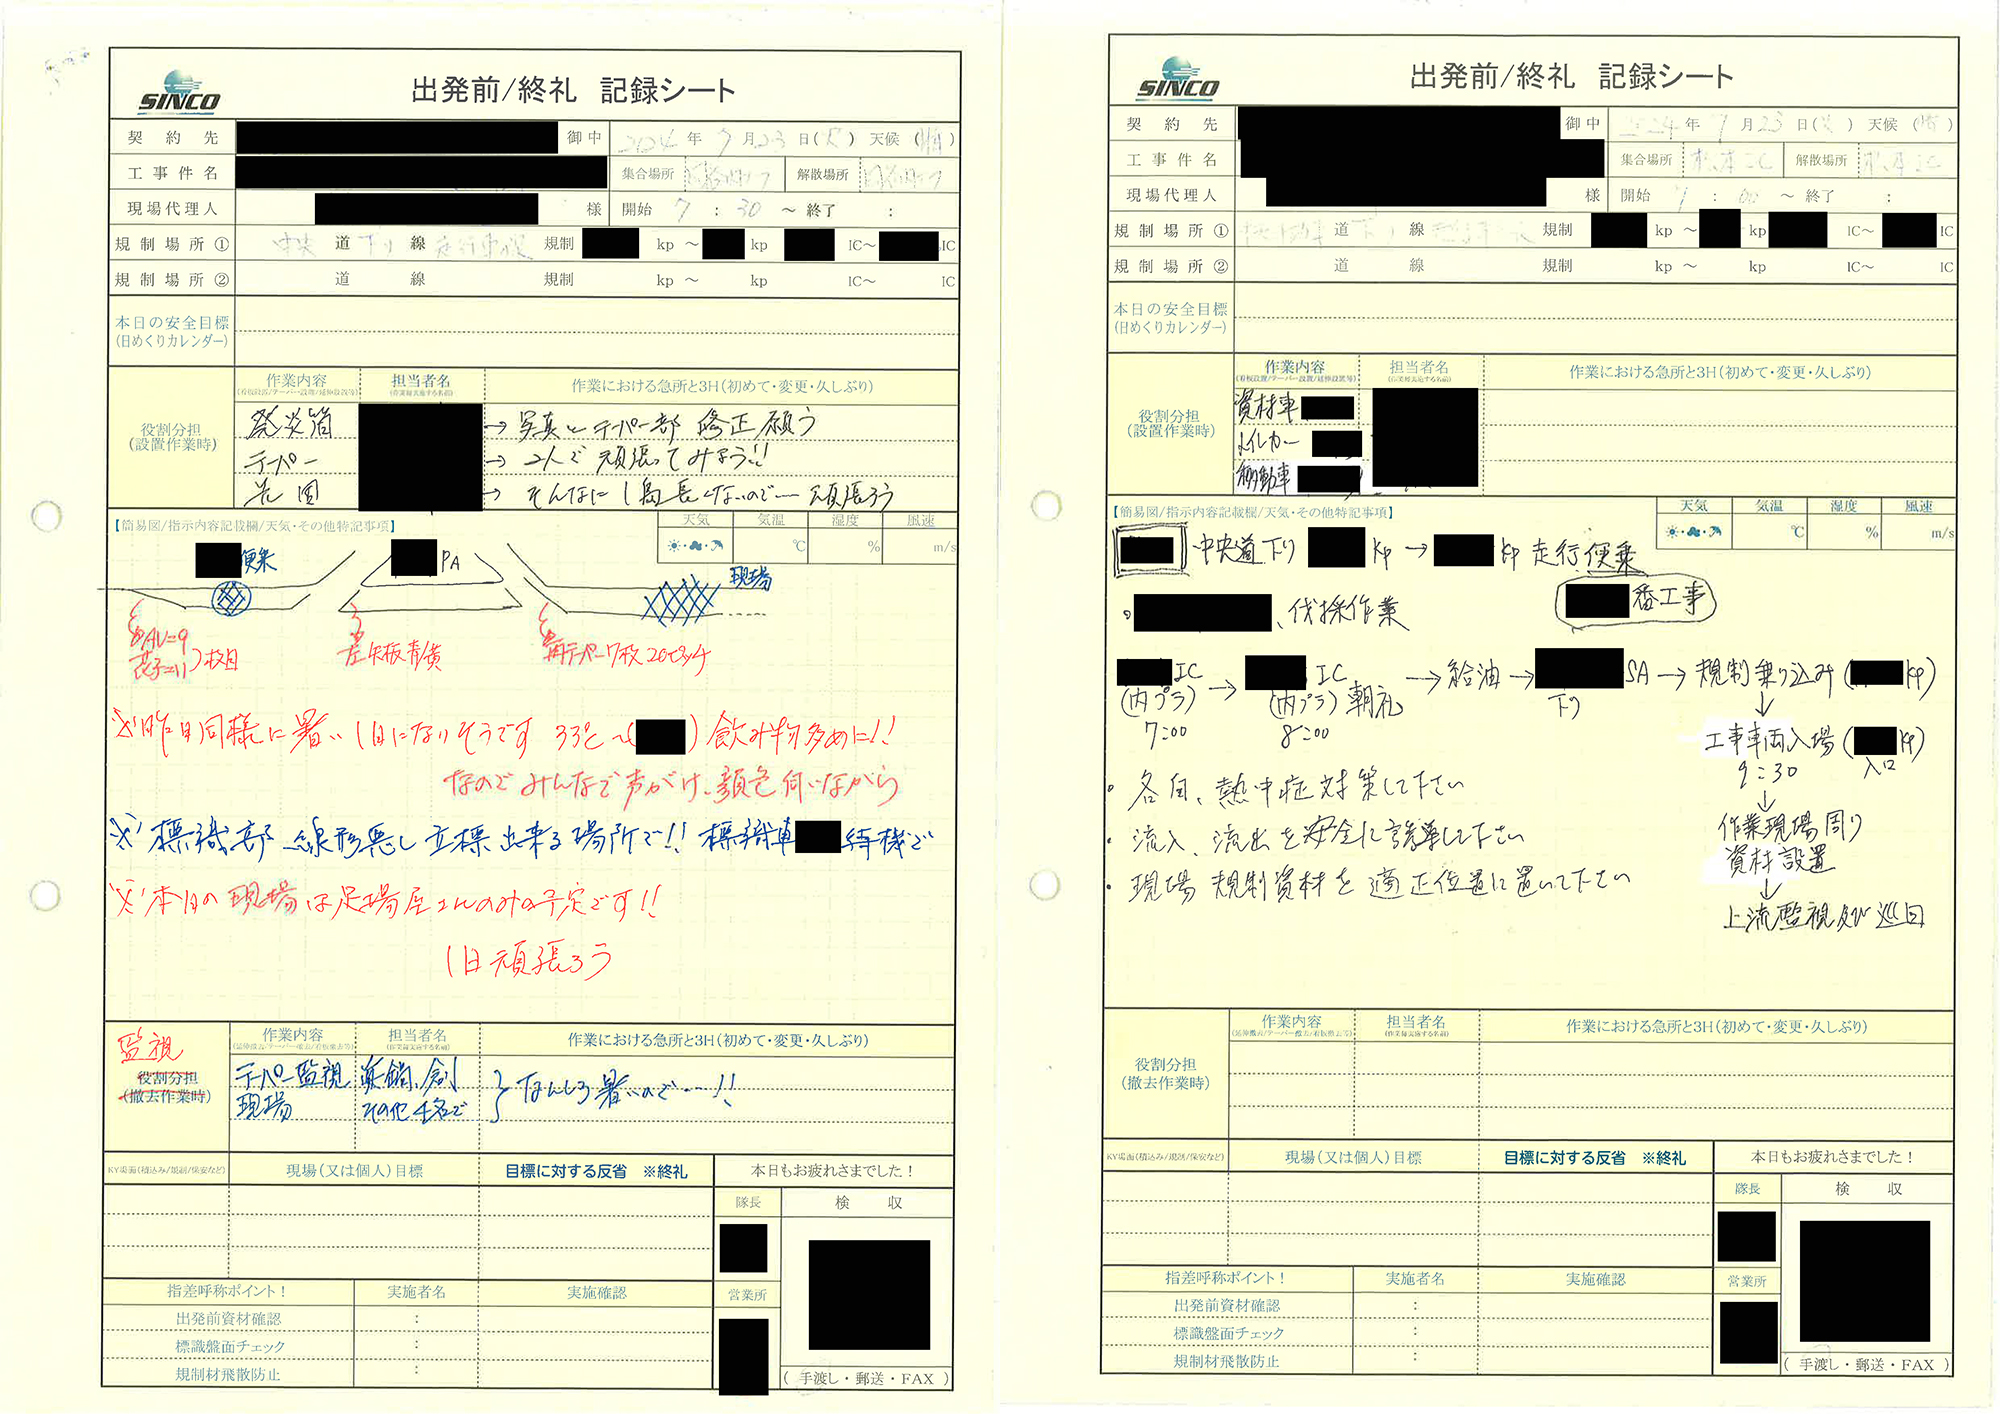 SINCO
出発前/終礼 記録シート
契約先 御中 2024年7月23日(火) 天候(晴)
工事件名 集合場所 解散場所
現場代理人 様 開始 7:30 ～ 終了 :
規制場所① 中央道 下り線 走行車線 規制 kp ～ kp IC～ IC
規制場所② 道 線 規制 kp ～ kp IC～ IC
本日の安全目標
(日めくりカレンダー)
役割分担
(設置作業時)
作業内容 担当者名 作業における急所と3H(初めて・変更・久しぶり)
(看板設置/テーパー設置/延伸設置等) (作業毎実施する名前)
発炎筒 → 写真とテーパー部 修正願う
テーパー → 2人で頑張ってみよう!!
→ そんなに 長くないので…頑張ろう
【簡易図/指示内容記載欄/天気・その他特記事項】
天気 気温 湿度 風速
℃ % m/s
便乗 PA 現場
AL=9
=11 枚目
矢板青/黄
テーパー7枚20ピッチ
※昨日同様に暑い1日になりそうです 33℃～( ) 飲み物多めに!!
なのでみんなで声がけ、顔色伺いながら
※標識部 線形悪し 立標出来る場所で!! 標識車 待機で
※本日の現場は足場屋さんのみの予定です!!
1日頑張ろう
監視
役割分担
(撤去作業時)
作業内容 担当者名 作業における急所と3H(初めて・変更・久しぶり)
(延伸撤去/テーパー撤去/看板撤去等) (作業毎実施する名前)
テーパー監視
現場 その他4名で なんしろ暑いので…!!
KY場面(積込み/規制/保安など) 現場(又は個人)目標 目標に対する反省 ※終礼 本日もお疲れさまでした!
隊長 検収
指差呼称ポイント! 実施者名 実施確認 営業所
出発前資材確認 :
標識盤面チェック :
規制材飛散防止 :
(手渡し・郵送・FAX)
SINCO
出発前/終礼 記録シート
契約先 御中 2024年7月23日(火) 天候(晴)
工事件名 集合場所 松本IC 解散場所 松本IC
現場代理人 様 開始 7:00 ～ 終了 :
規制場所① 道 下り線 規制 kp ～ kp IC～ IC
規制場所② 道 線 規制 kp ～ kp IC～ IC
本日の安全目標
(日めくりカレンダー)
役割分担
(設置作業時)
作業内容 担当者名 作業における急所と3H(初めて・変更・久しぶり)
(看板設置/テーパー設置/延伸設置等) (作業毎実施する名前)
資材車
トイレカー
移動車
【簡易図/指示内容記載欄/天気・その他特記事項】
天気 気温 湿度 風速
℃ % m/s
中央道下り kp → kp 走行便乗
・ 、伐採作業 番工事
IC → IC → 給油 → SA → 規制乗り込み( kp)
(内プラ) (内プラ) 朝礼 下り ↓
7:00 8:00 工事車両入場( kp)
9:30 入口
↓
・各自、熱中症対策して下さい
・流入、流出を安全に誘導して下さい
・現場 規制資材を適正位置に置いて下さい
作業現場周り
資材設置
↓
上流監視及び巡回
役割分担
(撤去作業時)
作業内容 担当者名 作業における急所と3H(初めて・変更・久しぶり)
(延伸撤去/テーパー撤去/看板撤去等) (作業毎実施する名前)
KY場面(積込み/規制/保安など) 現場(又は個人)目標 目標に対する反省 ※終礼 本日もお疲れさまでした!
隊長 検収
指差呼称ポイント! 実施者名 実施確認 営業所
出発前資材確認 :
標識盤面チェック :
規制材飛散防止 :
(手渡し・郵送・FAX)